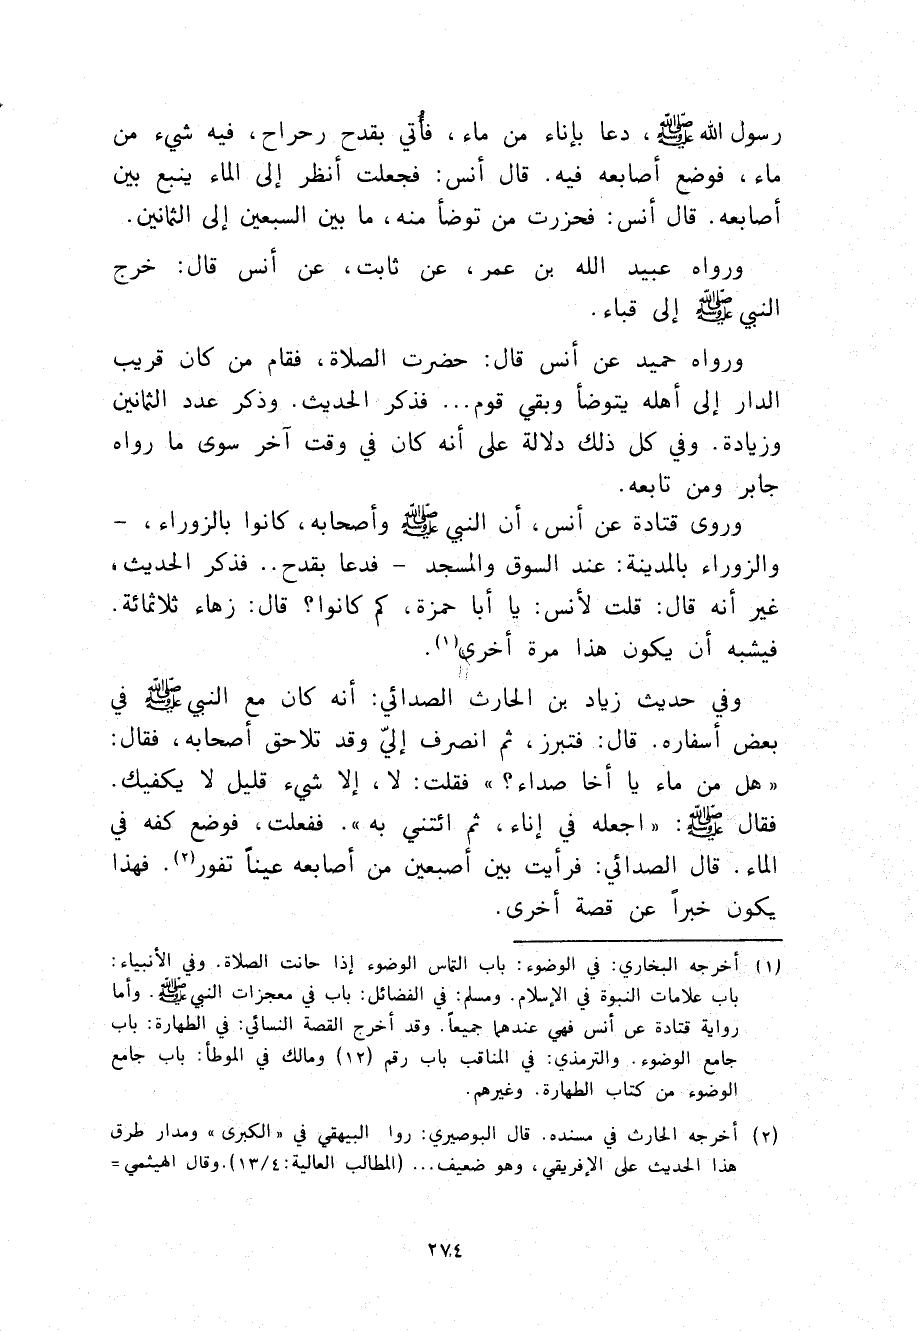 رسول الله ﷺ، دعا بإناء من ماء، فأُتي بقدح رحراح، فيه شيء من
ماء، فوضع أصابعه فيه. قال أنس: فجعلت أنظر إلى الماء ينبع بين
أصابعه. قال أنس: فحزرت من توضأ منه، ما بين السبعين إلى الثمانين.
ورواه عبيد الله بن عمر، عن ثابت، عن أنس قال: خرج
النبي ﷺ إلى قباء.
ورواه حميد عن أنس قال: حضرت الصلاة، فقام من كان قريب
الدار إلى أهله يتوضأ وبقي قوم... فذكر الحديث. وذكر عدد الثمانين
وزيادة. وفي كل ذلك دلالة على أنه كان في وقت آخر سوى ما رواه
جابر ومن تابعه.
وروى قتادة عن أنس، أن النبي ﷺ وأصحابه، كانوا بالزوراء، –
والزوراء بالمدينة: عند السوق والمسجد – فدعا بقدح.. فذكر الحديث،
غير أنه قال: قلت لأنس: يا أبا حمزة، كم كانوا؟ قال: زهاء ثلاثمائة.
فيشبه أن يكون هذا مرة أخرى(١).
وفي حديث زياد بن الحارث الصدائي: أنه كان مع النبي ﷺ في
بعض أسفاره. قال: فتبرز، ثم انصرف إليّ وقد تلاحق أصحابه، فقال:
« هل من ماء يا أخا صداء؟ » فقلت: لا، إلا شيء قليل لا يكفيك.
فقال ﷺ: « اجعله في إناء، ثم ائتني به ». ففعلت، فوضع كفه في
الماء. قال الصدائي: فرأيت بين أصبعين من أصابعه عيناً تفور(٢). فهذا
يكون خبراً عن قصة أخرى.
(١) أخرجه البخاري: في الوضوء: باب التماس الوضوء إذا حانت الصلاة. وفي الأنبياء:
باب علامات النبوة في الإسلام. ومسلم: في الفضائل: باب في معجزات النبي ﷺ. وأما
رواية قتادة عن أنس فهي عندهما جميعاً. وقد أخرج القصة النسائي: في الطهارة: باب
جامع الوضوء. والترمذي: في المناقب باب رقم (١٢) ومالك في الموطأ: باب جامع
الوضوء من كتاب الطهارة. وغيرهم.
(٢) أخرجه الحارث في مسنده. قال البوصيري: روا البيهقي في « الكبرى » ومدار طرق
هذا الحديث على الإفريقي، وهو ضعيف... (المطالب العالية: ١٣/٤). وقال الهيثمي =
٢٧٤